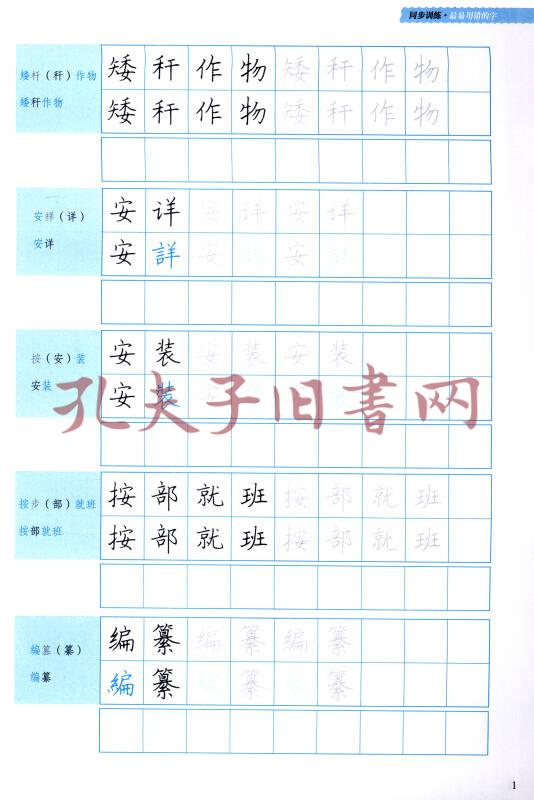 同步训练·最易用错的字
矮杆（秆）作物
矮秆作物
矮秆作物矮秆作物
矮秆作物矮秆作物
安样（详）
安详
安详安详安详
安詳安詳安詳
按（安）装
安装
安装安装安装
安裝安裝安裝
孔夫子旧书网
按步（部）就班
按部就班
按部就班按部就班
按部就班按部就班
编篡（纂）
编纂
编纂编纂编纂
編纂編纂編纂
1